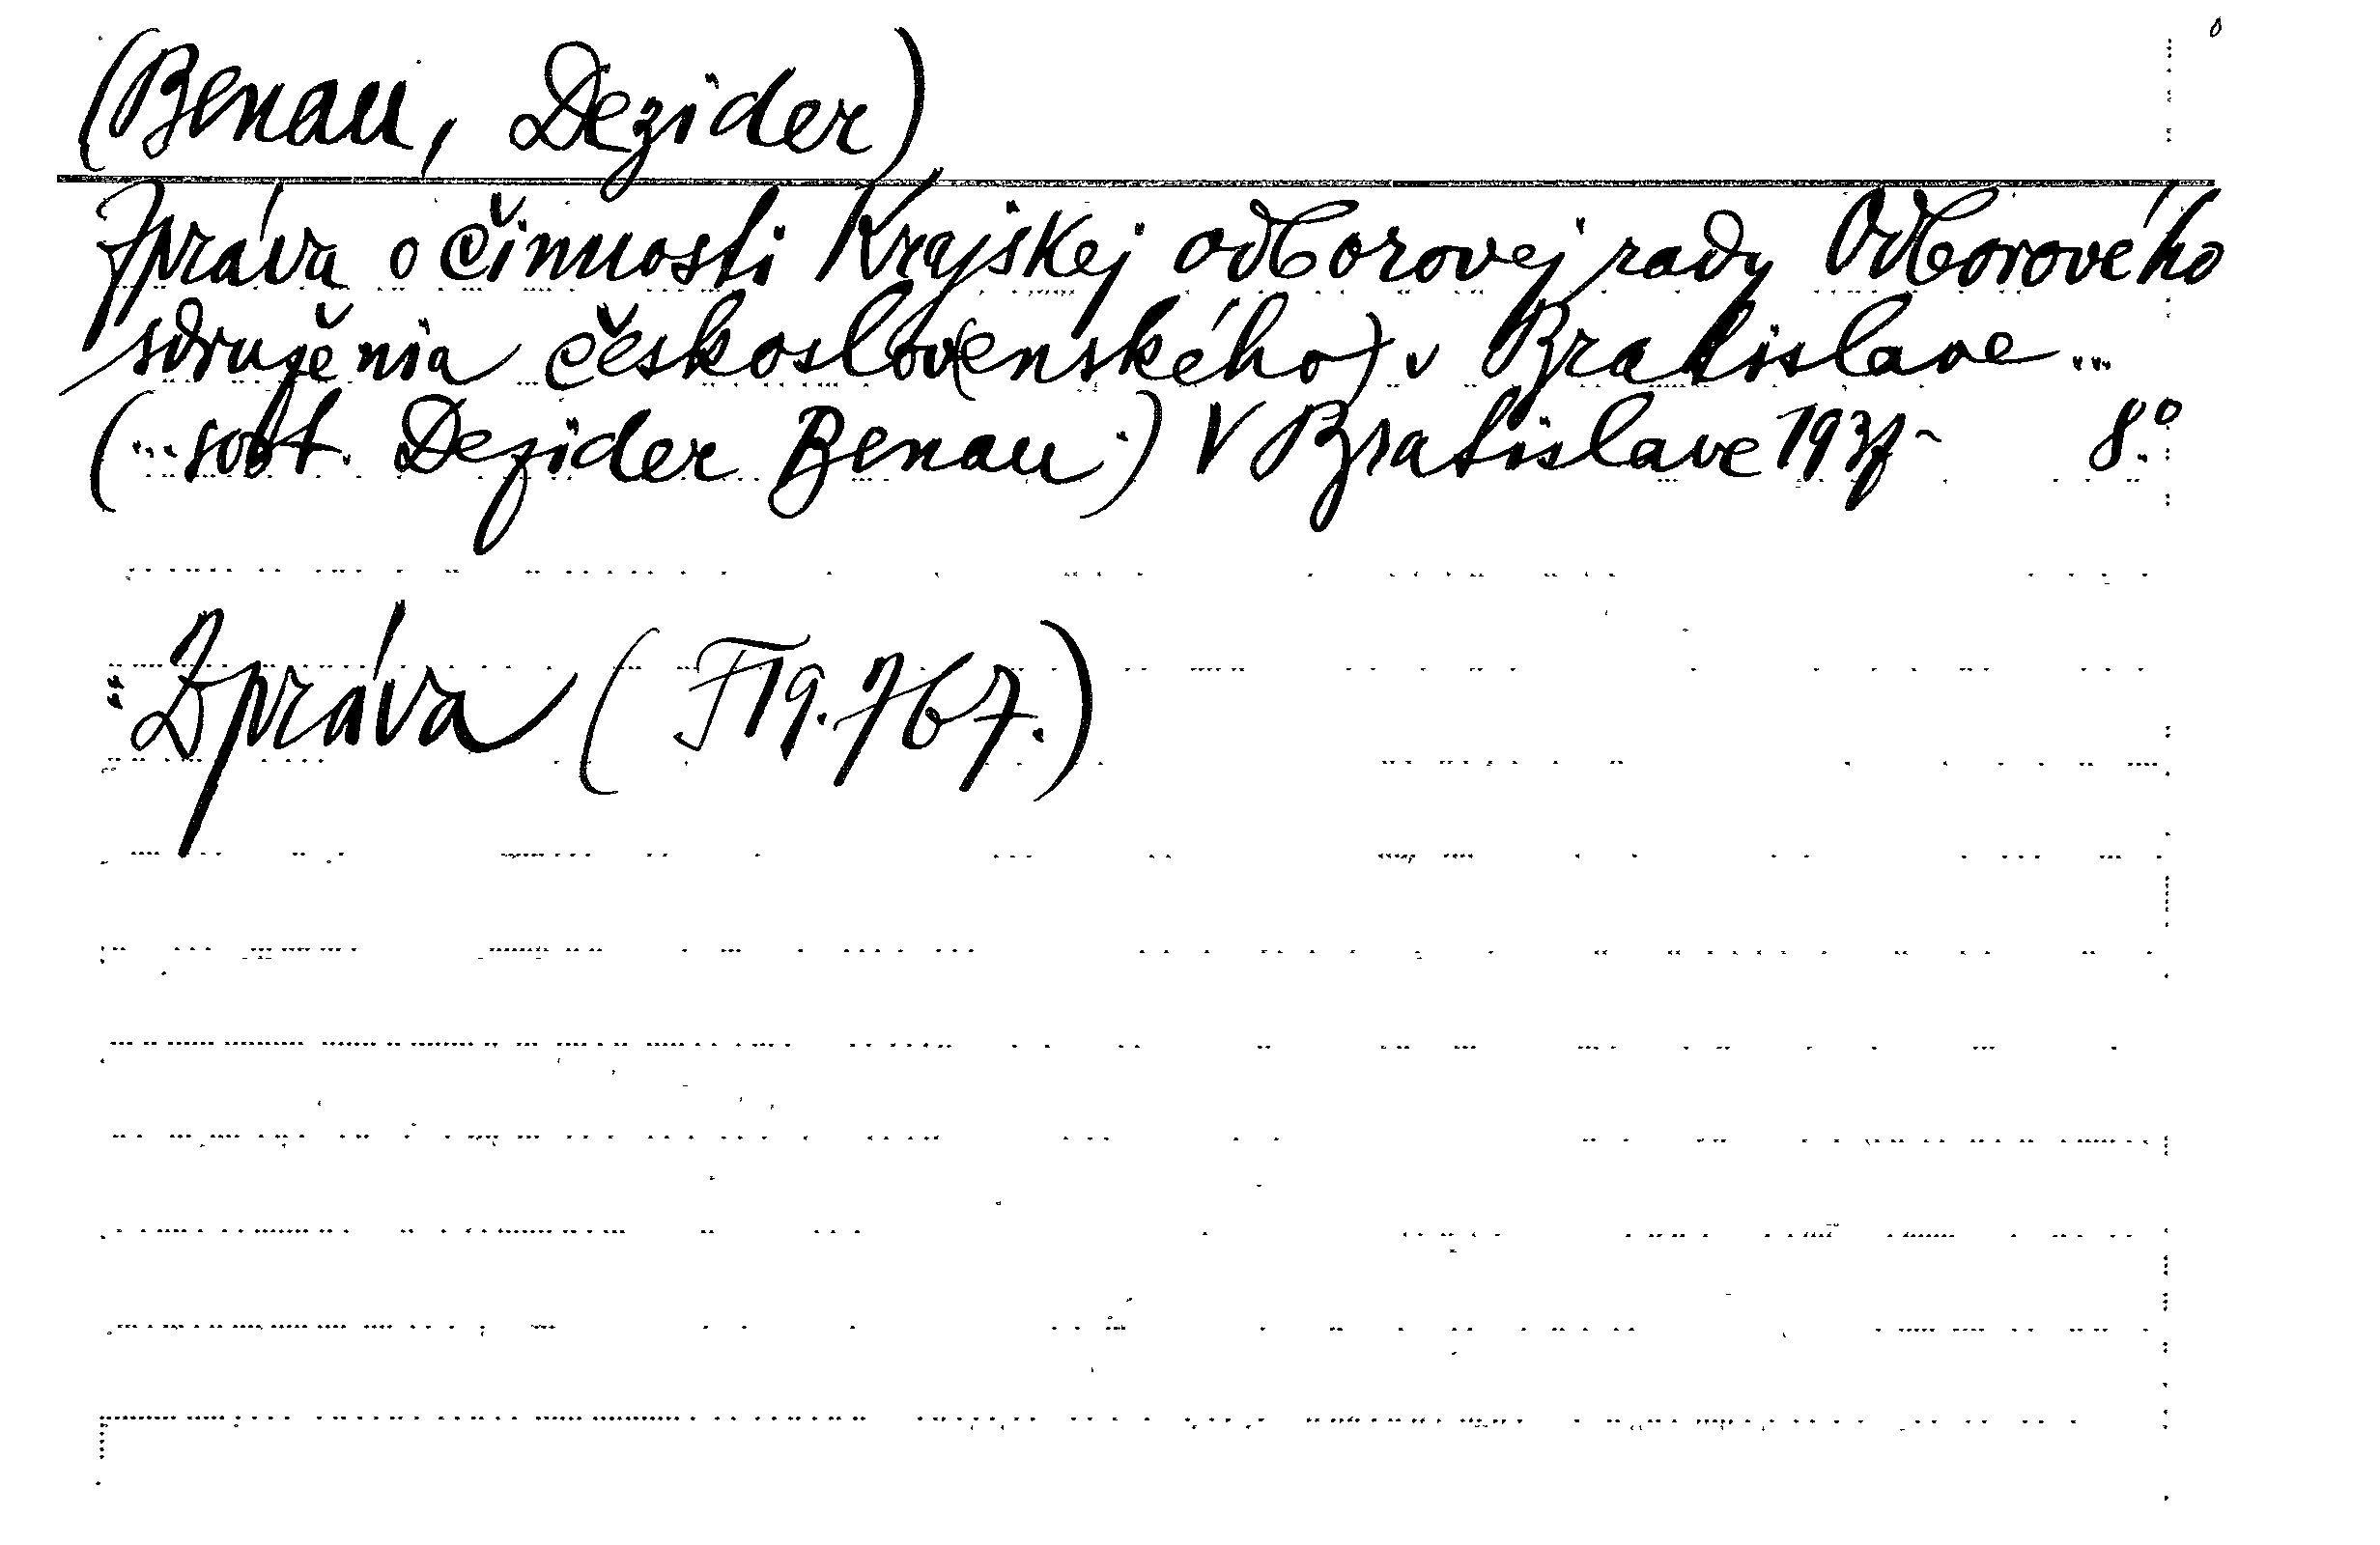 (Benau, Dezider)
Zpráva o činnosti Krajskej odborovej rady Odborového
sdruženia českoslov(enského) v Bratislave ...
(... sost. Dezider Benau.) V Bratislave 1937- 8°.
: Zpráva (F 19.767.)